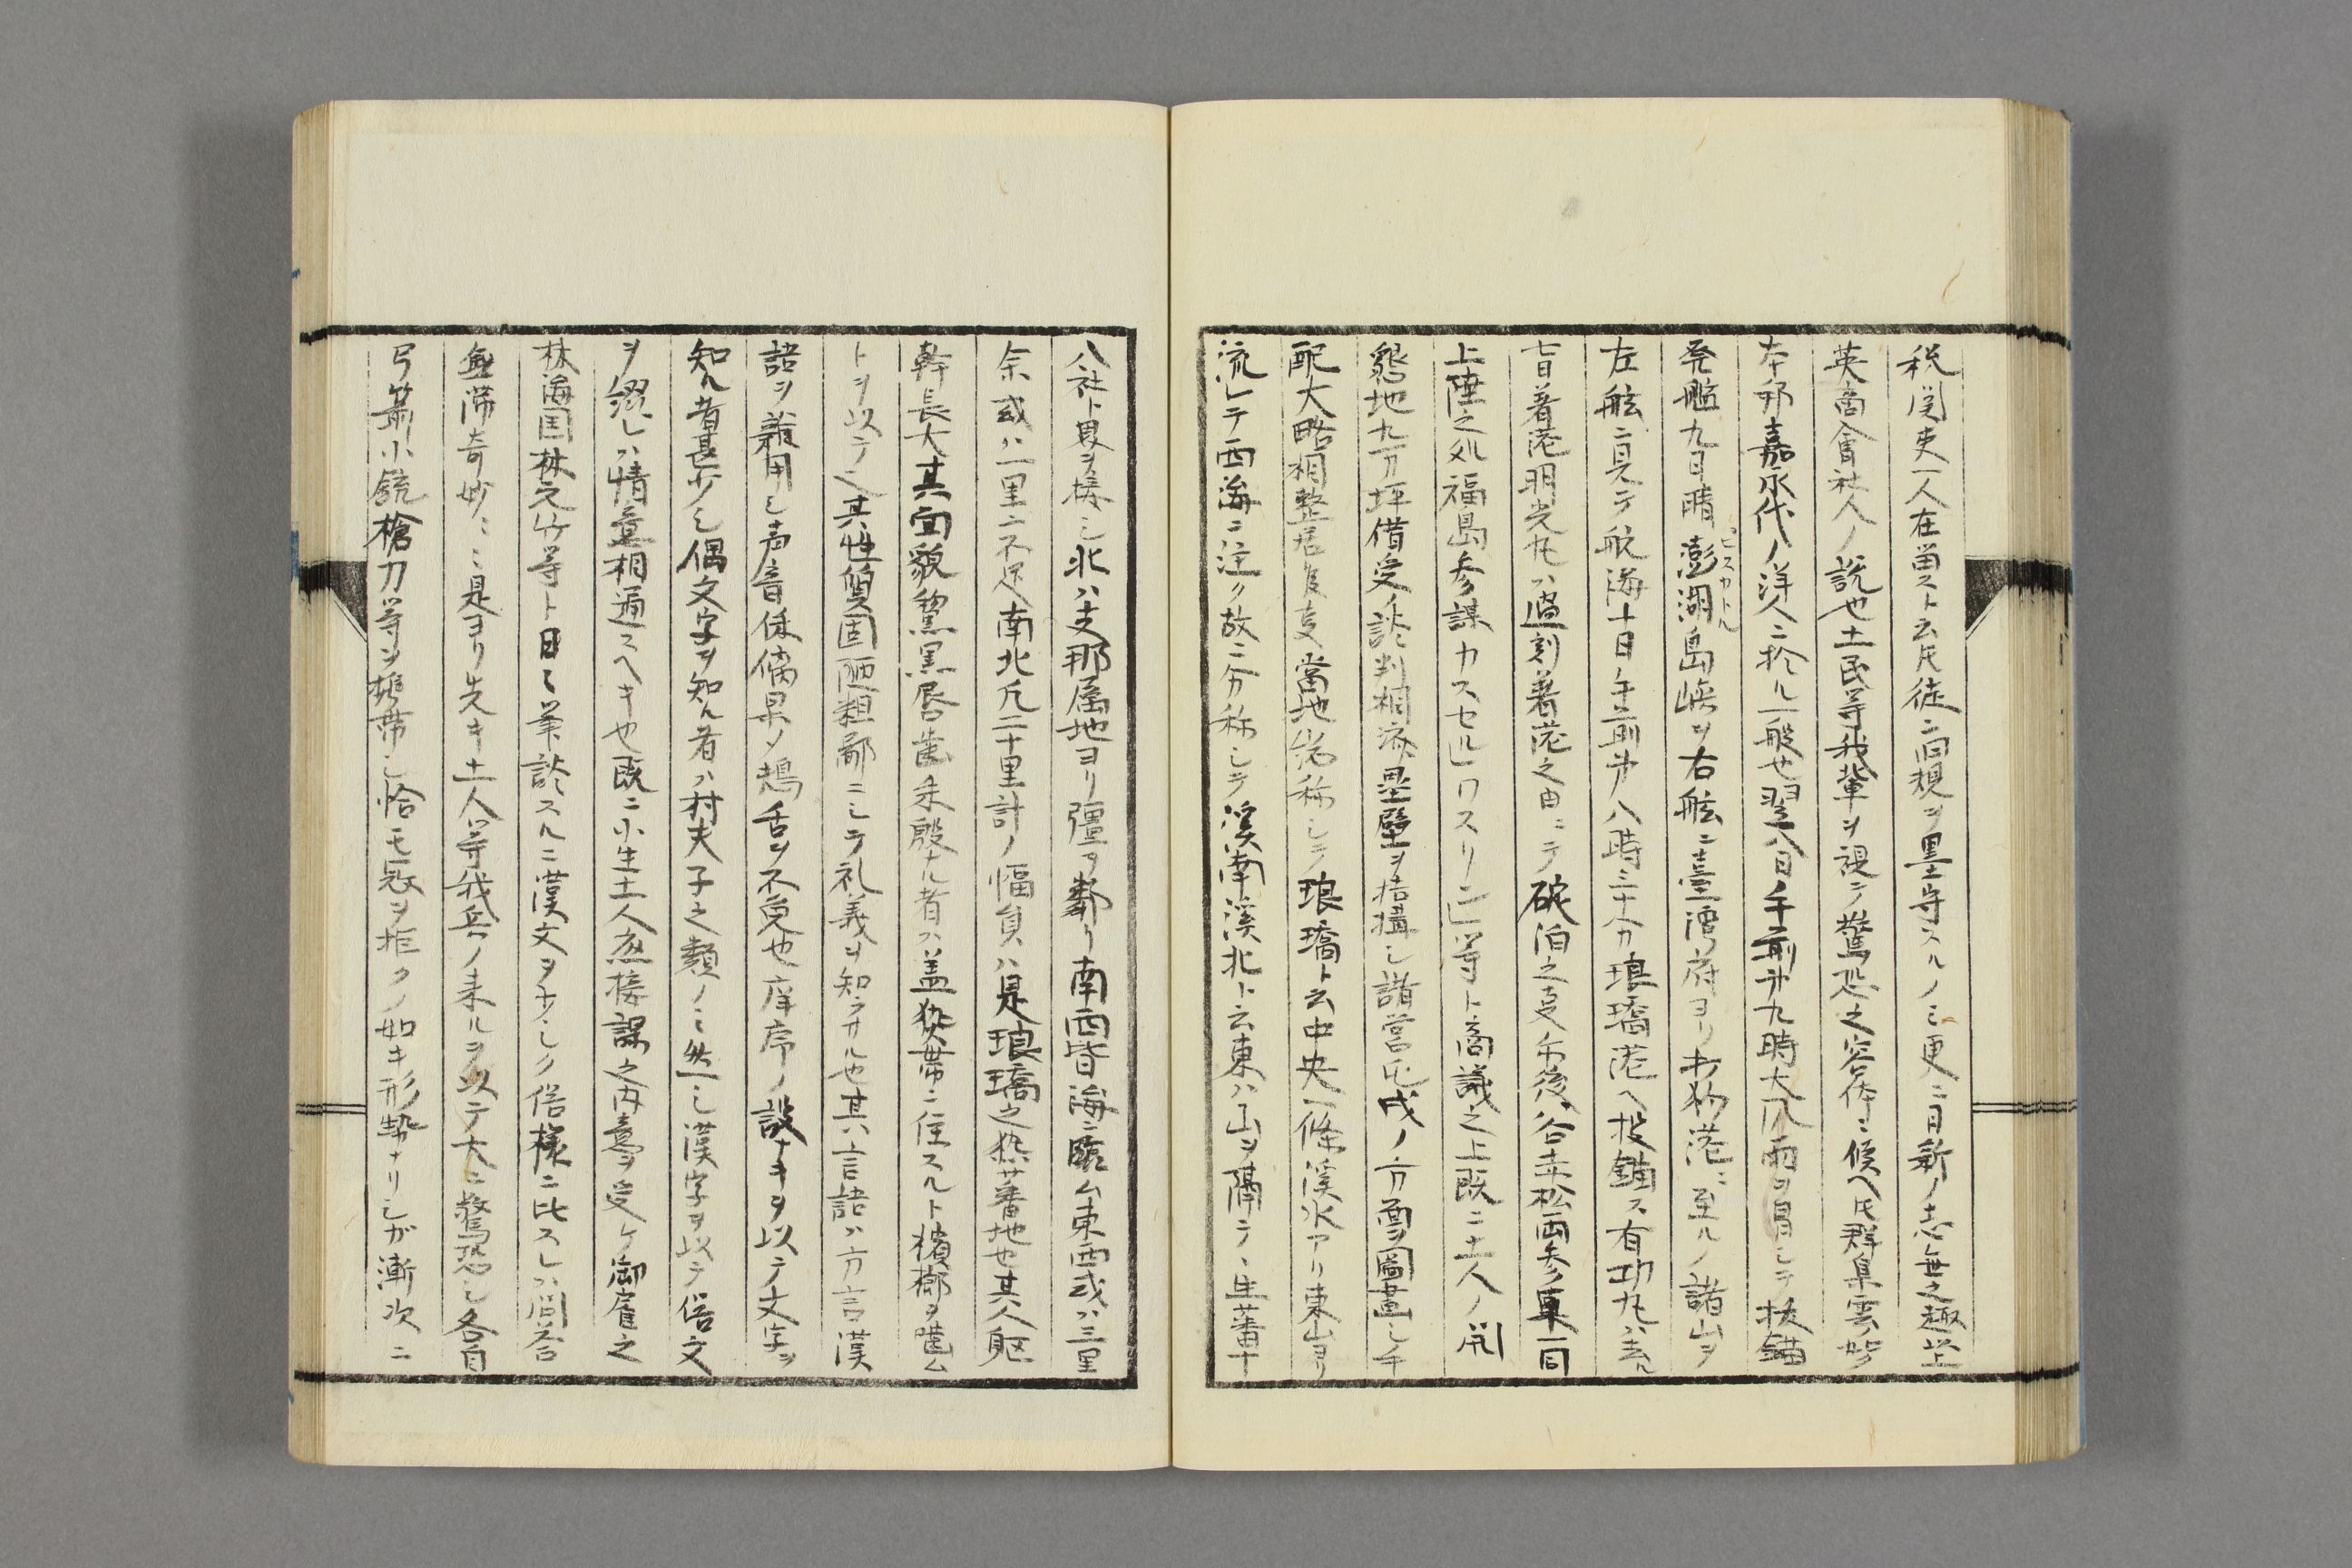 税関吏一人在留スト云氏徒ニ同規ヲ墨守スルノミ更ニ日新ノ志無之趣以上
英商會社人ノ説也土民等我輩ヲ視テ驚恐之容体ニ候ヘ氏群集雲ノ如ク
本邦嘉永代ノ洋人ニ於ル一般也翌八日午前第九時大風雨ヲ冒シテ抜錨
発艦九日晴澎湖島峡ヲ右舷ニ臺湾府ヨリ打狗港ニ至ルノ諸山ヲ
ピスカトル
左舷ニ見テ航海十日午前第八時三十分琅𤩝港ヘ投錨ス有功丸ハ去ル
七日着港明光丸ハ過刻着港之由ニテ碇泊之支午後谷赤松両参軍一同
上陸之処福島参謀カスセル」ワスリン」等ト商議之上既ニ土人ノ開
懇地九万坪借受ノ談判相済塁壁ヲ結構シ諸営屯戍ノ方面ヲ圖畫シ手
配大略相整居候支當地総称シテ琅𤩝ト云中央一條溪水アリ東山ヨリ
流レテ西海ニ注ク故ニ分称シテ溪南溪北ト云東ハ山ヲ隔テヽ生蕃十
八社ト界ヲ接シ北ハ支那属地ヨリ彊ヲ鄰リ南西皆海ニ臨ム東西或ハ三里
余或ハ一里ニ不足南北凡二十里計ノ幅員ハ是琅𤩝之熟蕃地也其人躯
幹長大其面貌黎黒唇歯朱殷ナル者ハ盖熱帯ニ住スルト檳榔ヲ噛ム
トヲ以テ之其性質固陋粗鄙ニシテ礼義ヲ知ラサル也其言語ハ方言漢
語ヲ兼用シ声音侏㒧果ノ鴃舌ヲ不免也庠序ノ設ナキヲ以テ文字ヲ
知ル者甚少シ偶文字ヲ知ル者ハ村夫子之類ノミ然シ漢字ヲ以テ俗文
ヲ綴レハ情意相通スヘキ也既ニ小生土人応接課之内意ヲ受ケ御雇之
林海国林元竹等ト日々筆談スルニ漢文ヲ少シク俗様ニ比スレハ問答
無滞奇妙ニ是ヨリ先キ土人等我兵ノ来ルヲ以テ大ニ驚恐シ各自
弓箭小銃槍刀等ヲ携帯シ恰モ敵ヲ拒クノ如キ形勢ナリシガ漸次ニ